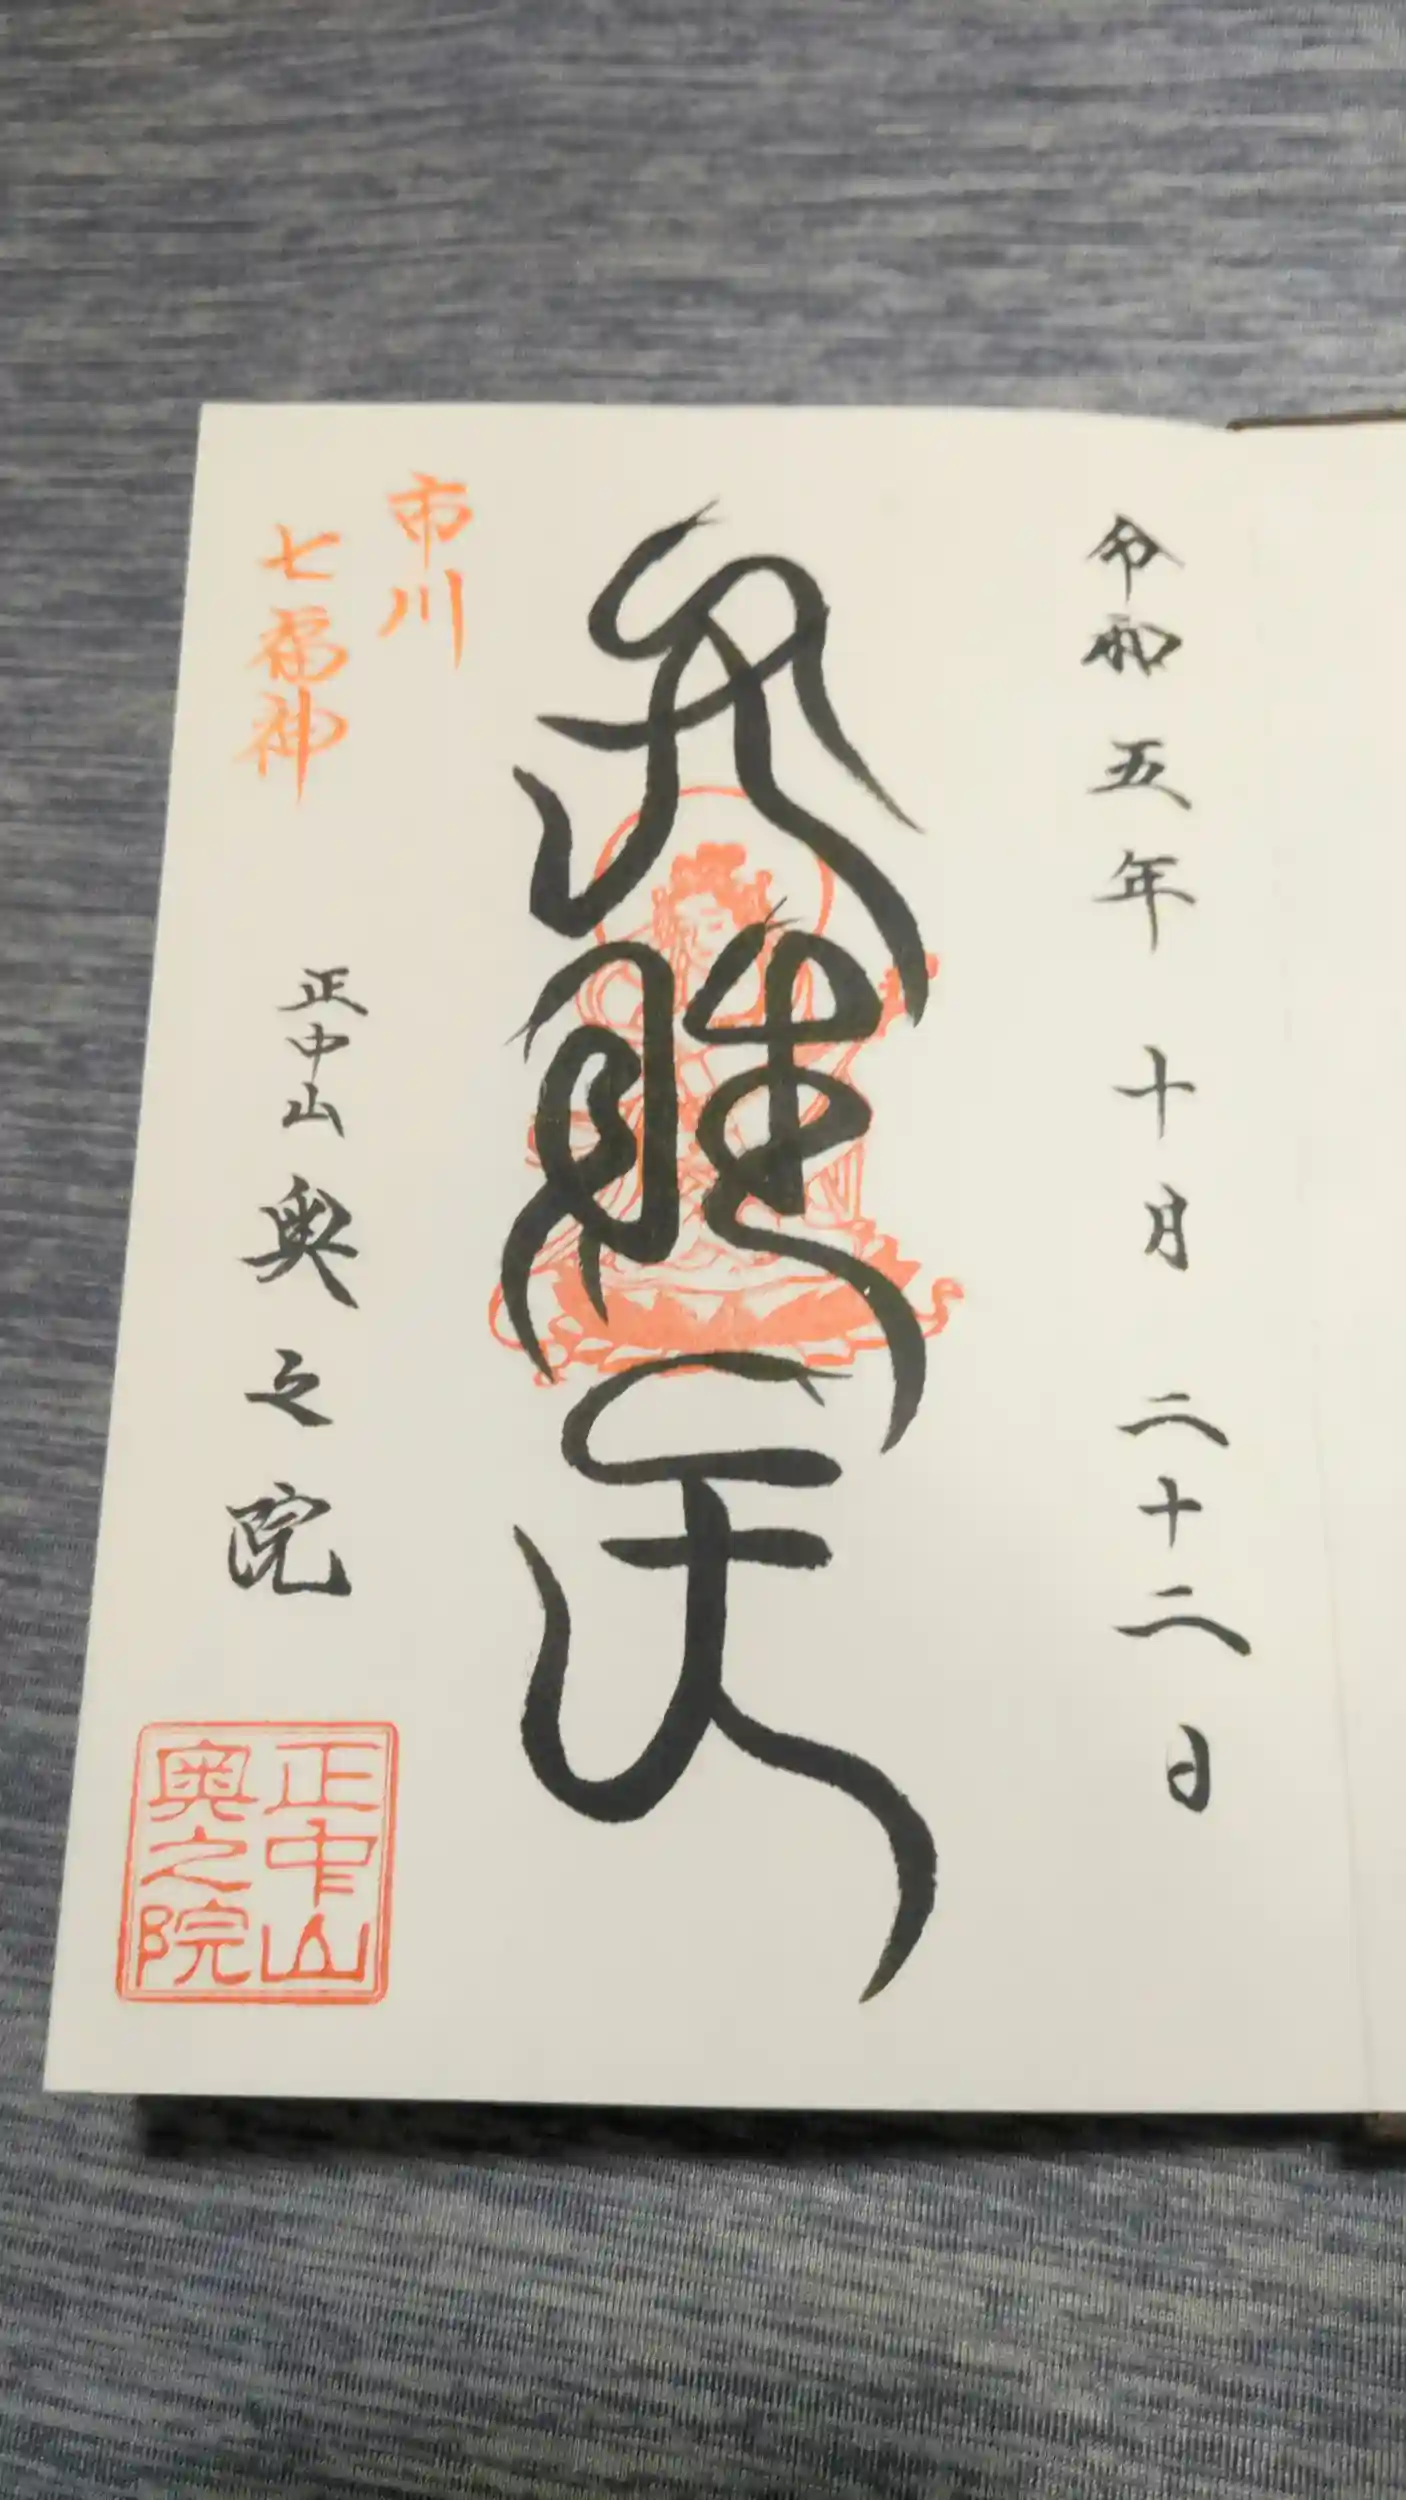 令和五年 十月 二十二日
天
市川
七福神
正中山 奥之院
正中山
奥之院